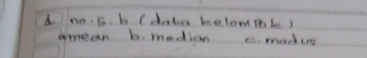 d no. 5. b (data kelompok)
a mean b. median c. modus